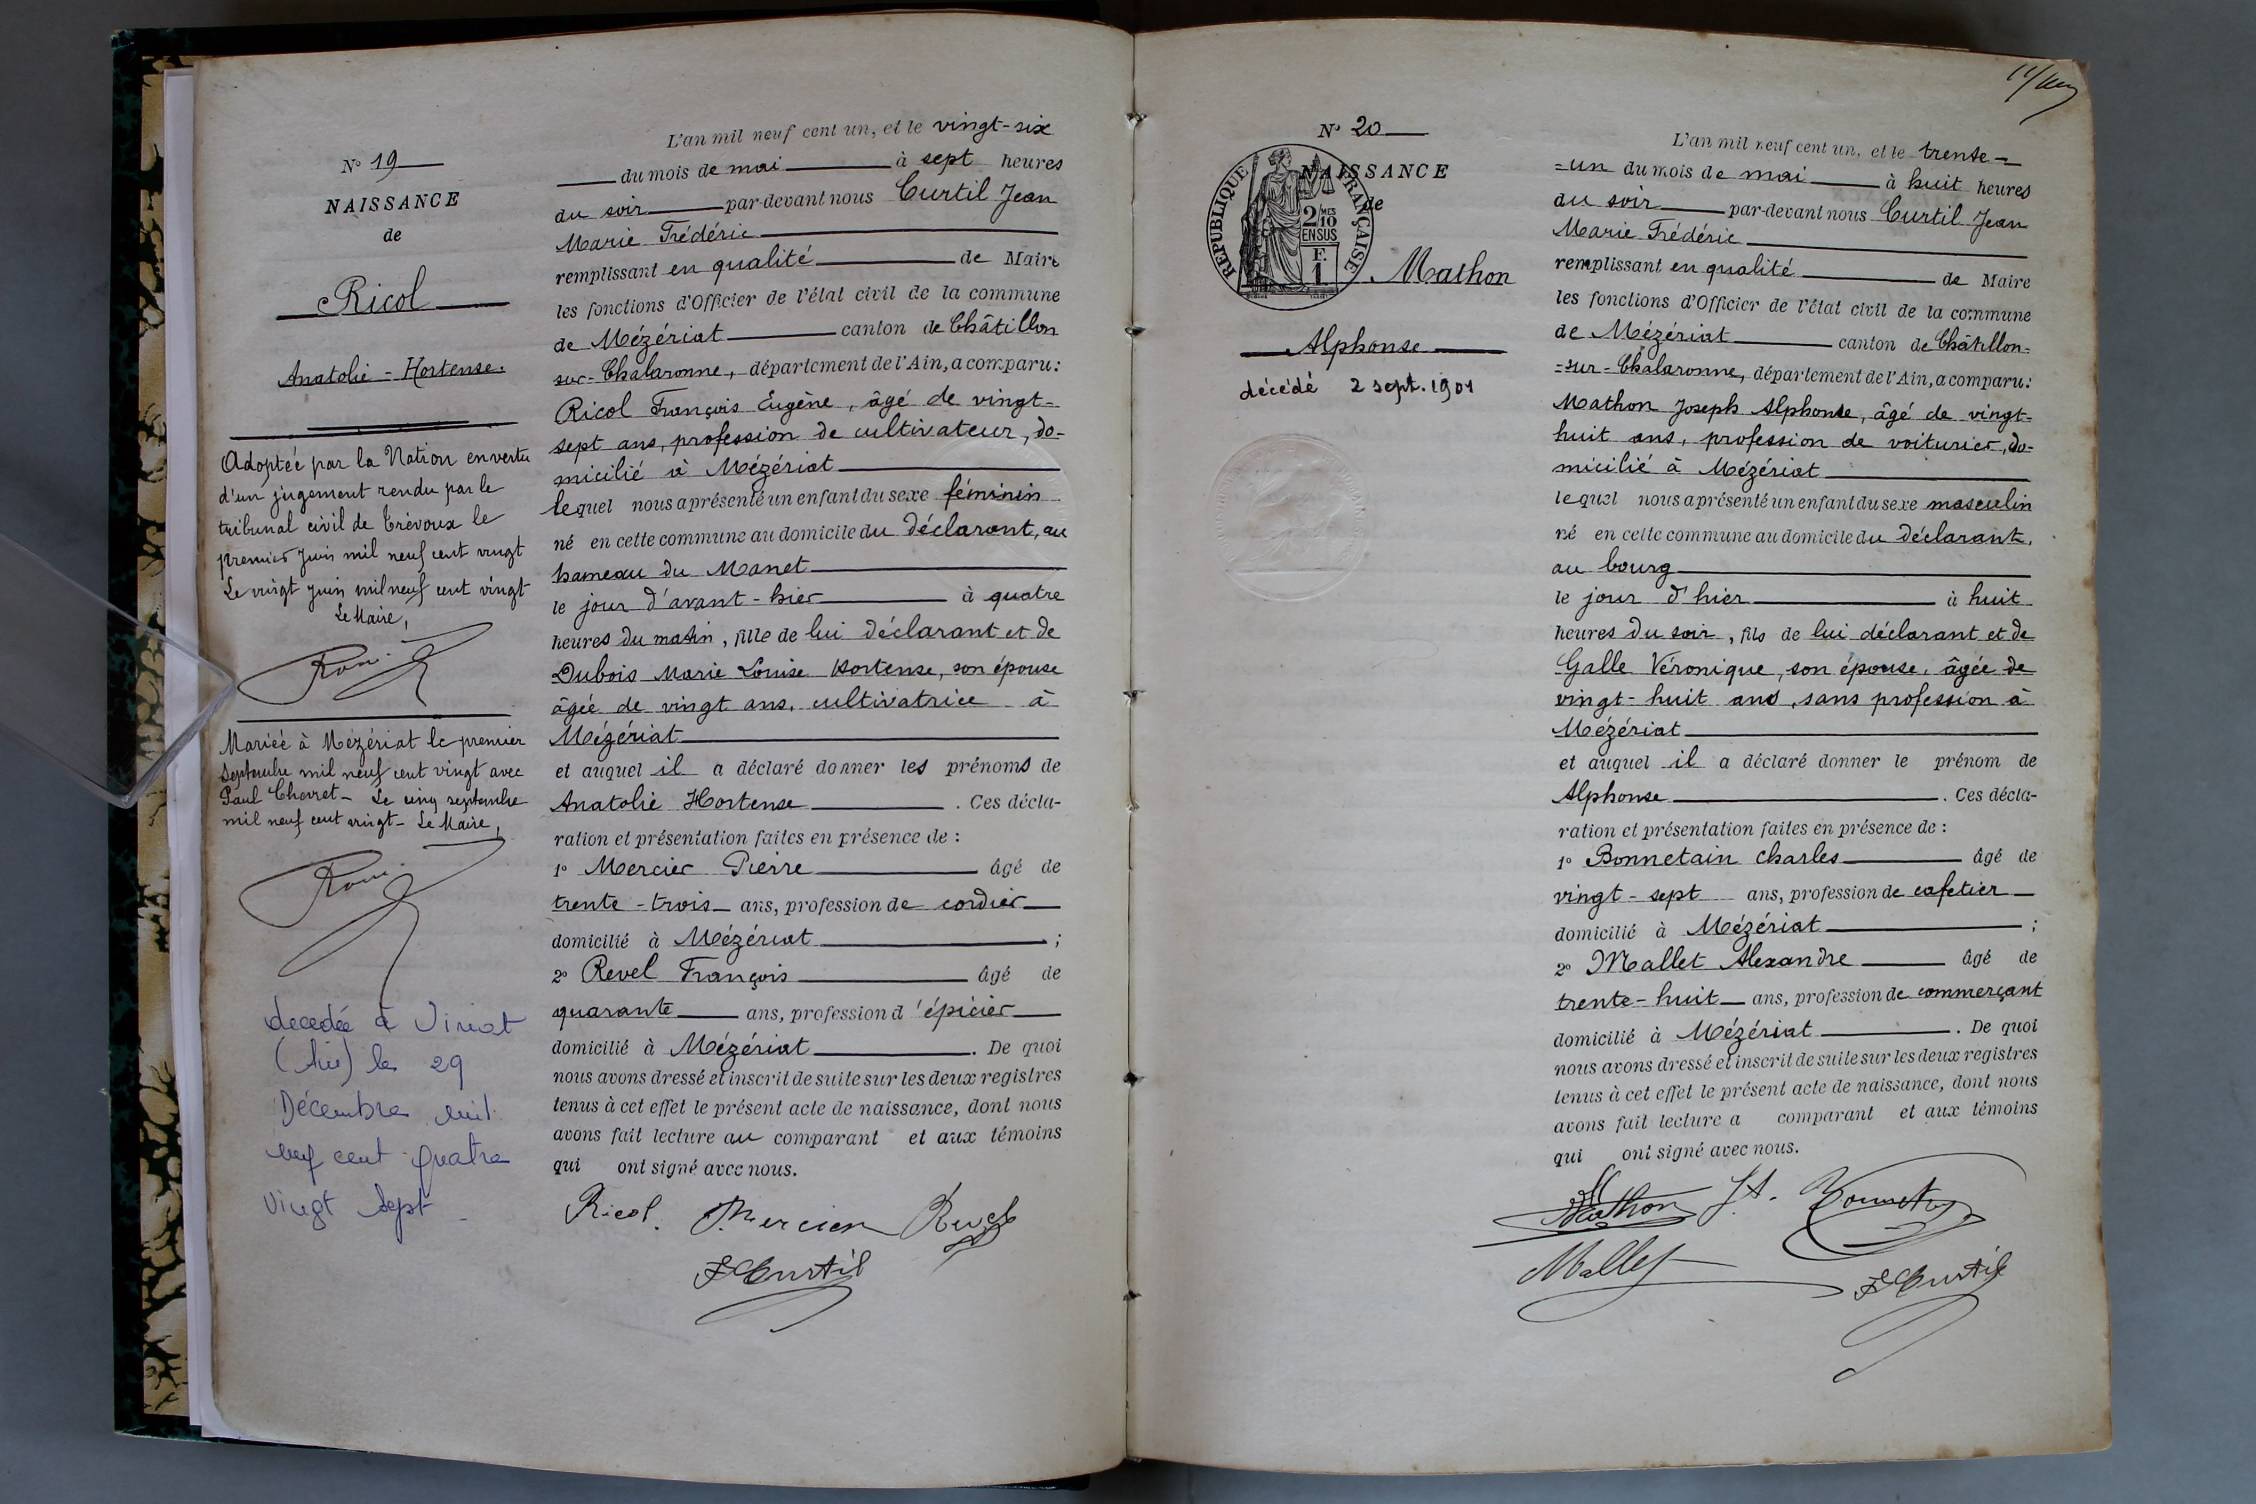 N° 19
NAISSANCE
de
Ricol
Anatolie - Hortense.
Adoptée par la Nation en vertu
d'un jugement rendu par le
tribunal civil de Trévoux le
premier Juin mil neuf cent vingt
Le vingt Juin mil neuf cent vingt
Le Maire,
Mariée à Mézériat le premier
septembre mil neuf cent vingt avec
Paul Chevret - Le cinq septembre
mil neuf cent vingt - Le Maire,
decedée à Viriat
(Ain) le 29
Décembre mil
neuf cent quatre
vingt sept
L'an mil neuf cent un, et le vingt-six
du mois de mai à sept heures
du soir par-devant nous Curtil Jean
Marie Frédéric
remplissant en qualité de Maire
les fonctions d'Officier de l'état civil de la commune
de Mézériat canton de Châtillon
sur-Chalaronne, département de l'Ain, a comparu:
Ricol François Eugène, âgé de vingt-
sept ans, profession de cultivateur, do-
micilié à Mézériat
lequel nous a présenté un enfant du sexe féminin
né en cette commune au domicile du déclarant, au
hameau du Manet
le jour d'avant-hier à quatre
heures du matin, fille de lui déclarant et de
Dubois Marie Louise Hortense, son épouse
âgée de vingt ans, cultivatrice à
Mézériat
et auquel il a déclaré donner les prénoms de
Anatolie Hortense. Ces décla-
ration et présentation faites en présence de :
1° Mercier Pierre âgé de
trente-trois ans, profession de cordier
domicilié à Mézériat ;
2° Revel François âgé de
quarante ans, profession d'épicier
domicilié à Mézériat. De quoi
nous avons dressé et inscrit de suite sur les deux registres
tenus à cet effet le présent acte de naissance, dont nous
avons fait lecture au comparant et aux témoins
qui ont signé avec nous.
Ricol. P. Mercier Revel
F Curtil
N° 20
NAISSANCE
de
RÉPUBLIQUE FRANÇAISE
2/10 MES
EN SUS
F.
1
Mathon
Alphonse
décédé 2 sept. 1901
L'an mil neuf cent un, et le trente-
=un du mois de mai à huit heures
du soir par-devant nous Curtil Jean
Marie Frédéric
remplissant en qualité de Maire
les fonctions d'Officier de l'état civil de la commune
de Mézériat canton de Châtillon-
=sur-Chalaronne, département de l'Ain, a comparu:
Mathon Joseph Alphonse, âgé de vingt-
huit ans, profession de voiturier, do-
micilié à Mézériat
lequel nous a présenté un enfant du sexe masculin
né en cette commune au domicile du déclarant,
au bourg
le jour d'hier à huit
heures du soir, fils de lui déclarant et de
Galle Véronique, son épouse, âgée de
vingt-huit ans, sans profession à
Mézériat
et auquel il a déclaré donner le prénom de
Alphonse. Ces décla-
ration et présentation faites en présence de :
1° Bonnetain Charles âgé de
vingt-sept ans, profession de cafetier
domicilié à Mézériat ;
2° Mallet Alexandre âgé de
trente-huit ans, profession de commerçant
domicilié à Mézériat. De quoi
nous avons dressé et inscrit de suite sur les deux registres
tenus à cet effet le présent acte de naissance, dont nous
avons fait lecture a comparant et aux témoins
qui ont signé avec nous.
Mathon J A.
Mallet F Curtil